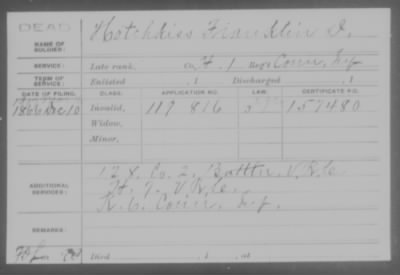 DEAD
NAME OF SOLDIER: Hotchkiss Franklin D.
SERVICE: Late rank, Co. H. 1 Reg't Conn. H.y.
TERM OF SERVICE: Enlisted , 1 Discharged , 1
DATE OF FILING. CLASS. APPLICATION NO. LAW. CERTIFICATE NO.
1866 Dec 10 Invalid, 117 816 157480
Widow,
Minor,
128. Co. 2. Battln. V.R.C.
ADDITIONAL SERVICES: H. 7. V.R.C.
Conn. H.y.
REMARKS:
Died , 1 , at